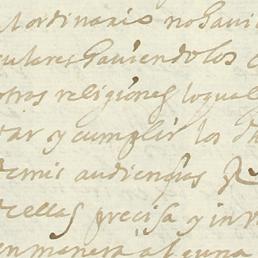 ordinario no havi
culares haviendolos
otras religiones loqual
tar y cumplir los
demis audiencias
de ellas precisa y inv
en manera alguna